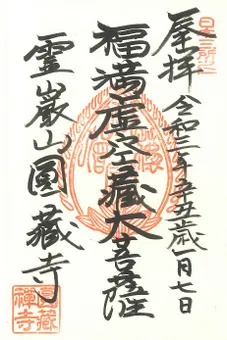 奉拝 令和三年辛丑歳一月七日
福満虚空蔵大菩薩
霊巌山圓藏寺
圓藏禅寺